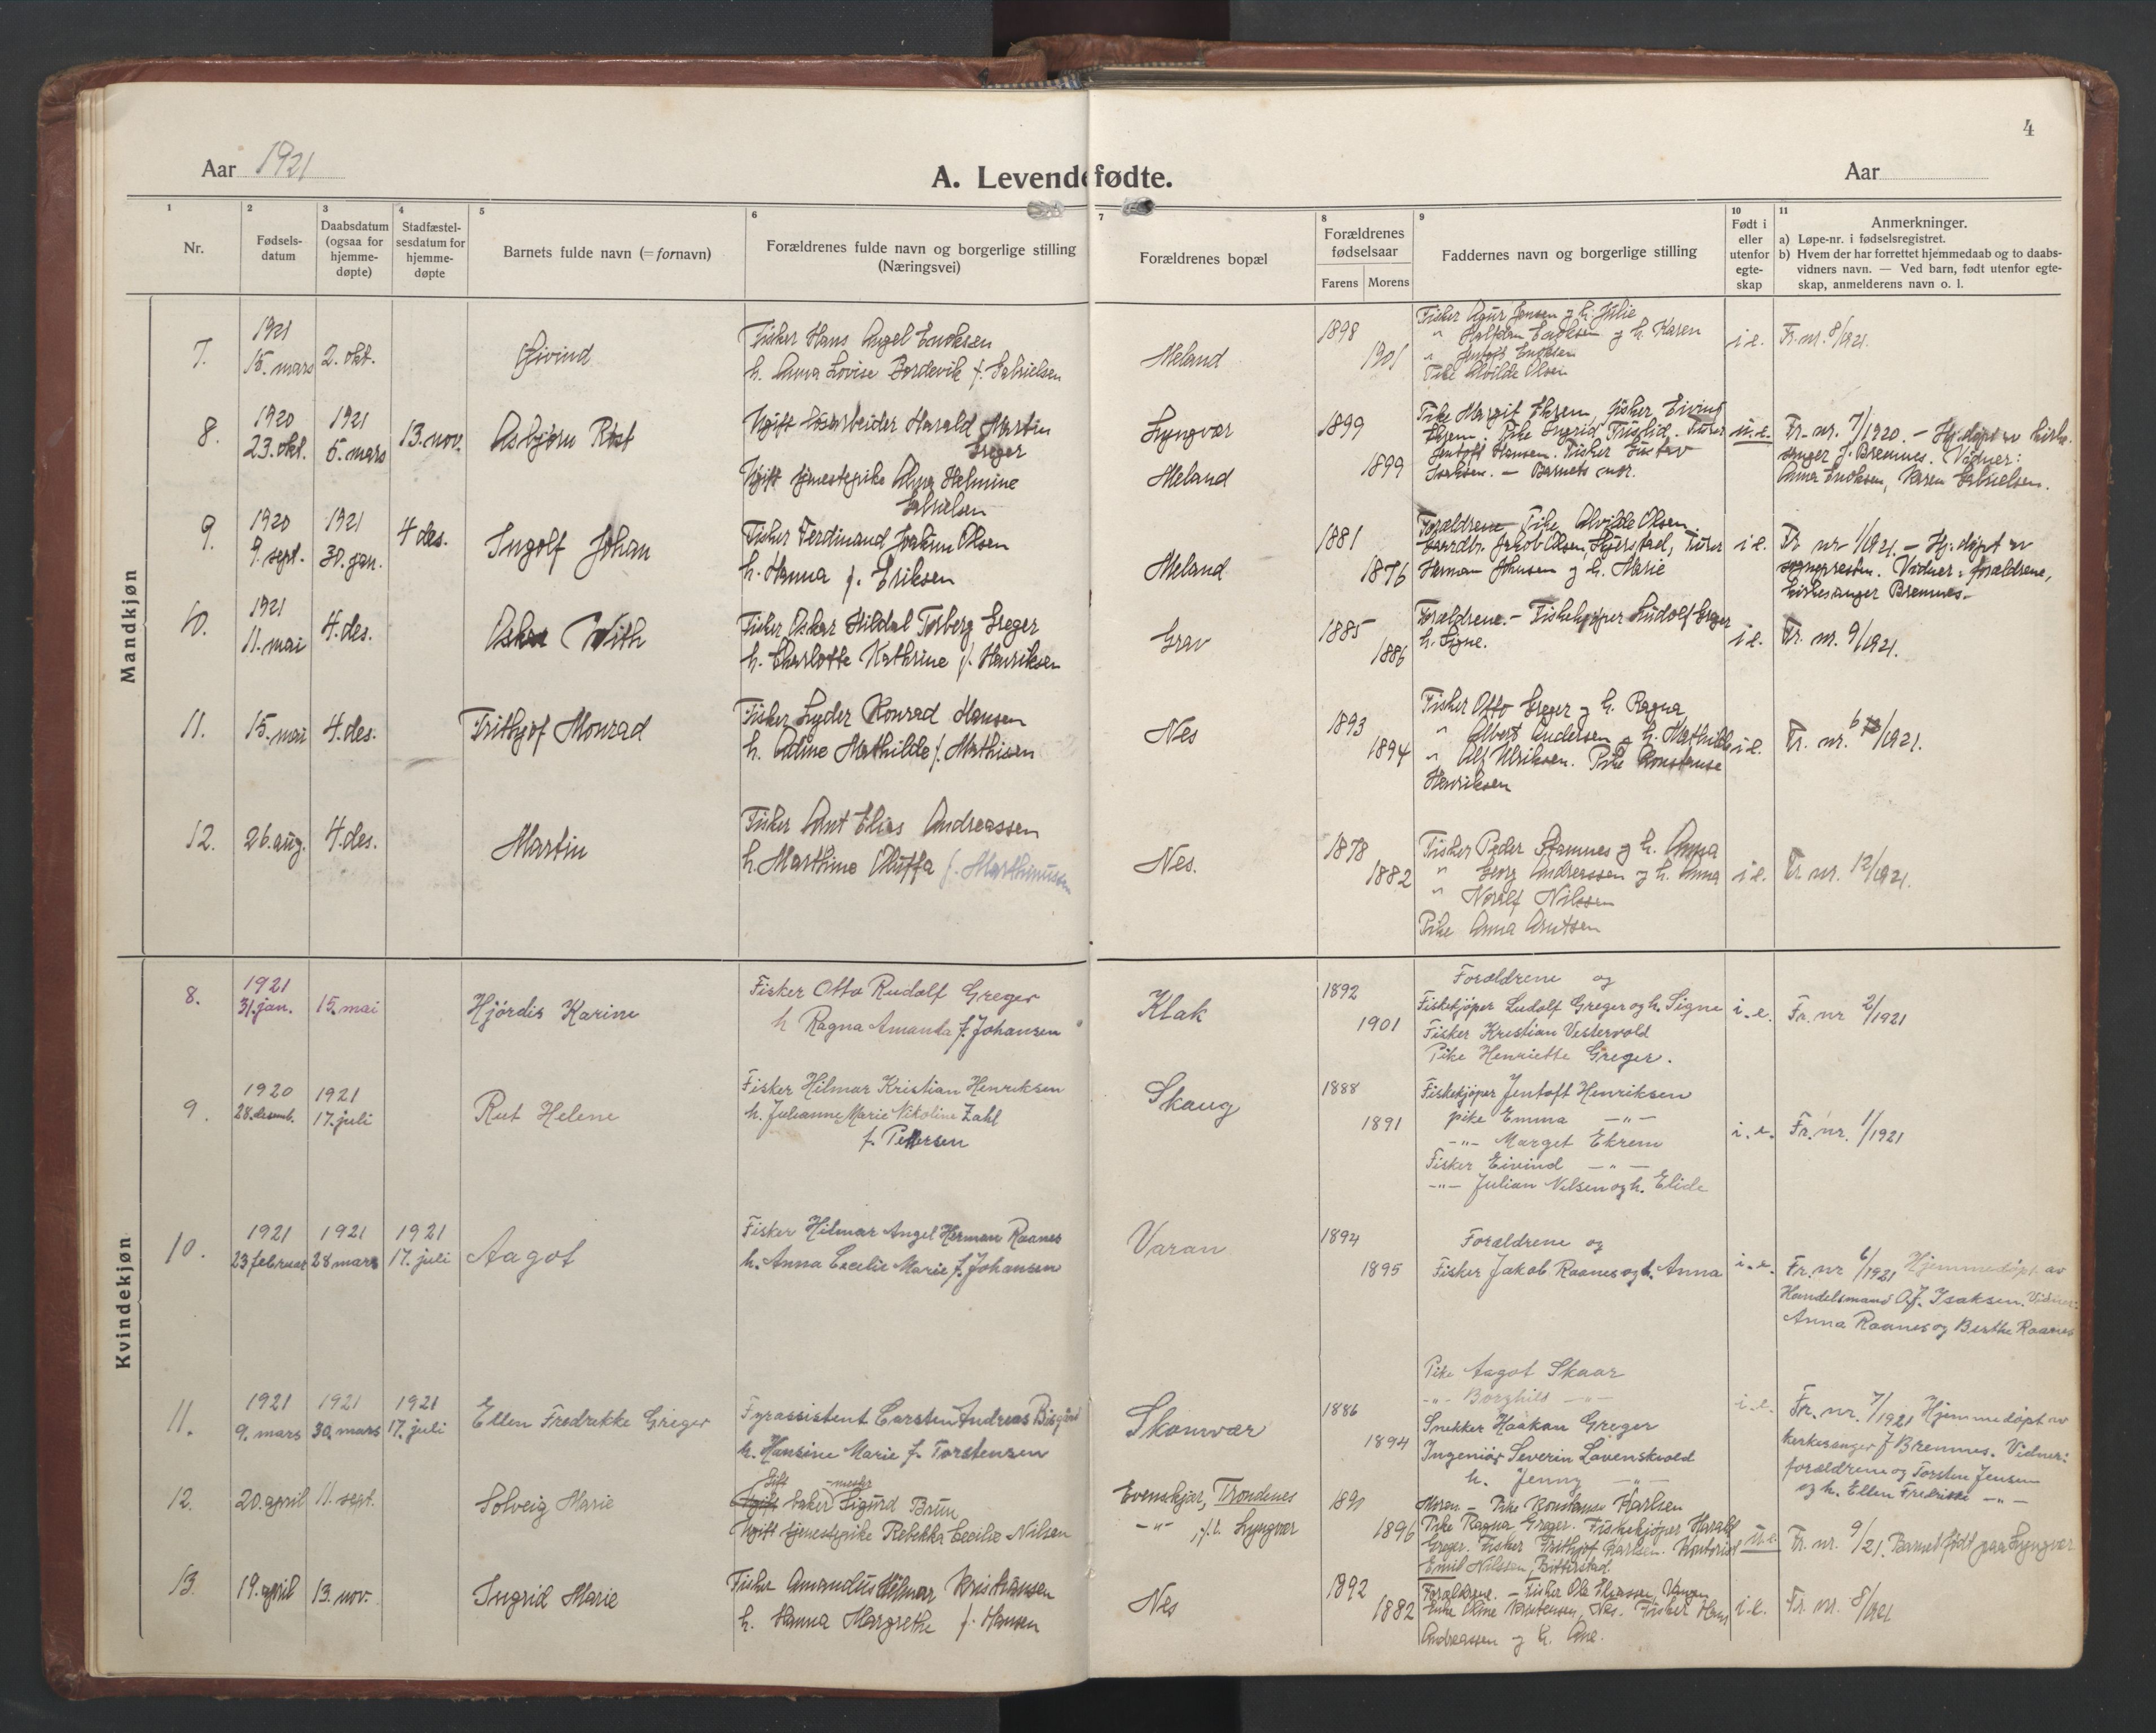 4
Aar 1921
A. Levendefødte.
Aar
1 2 3 4 5 6 7 8 9 10 11
Nr.
Fødsels-
datum
Daabsdatum
(ogsaa for
hjemme-
døpte)
Stadfæstel-
sesdatum for
hjemme-
døpte
Barnets fulde navn (= fornavn)
Forældrenes fulde navn og borgerlige stilling
(Næringsvei)
Forældrenes bopæl
Forældrenes
fødselsaar
Farens Morens
Faddernes navn og borgerlige stilling
Født i
eller
utenfor
egte-
skap
Anmerkninger.
a) Løpe-nr. i fødselsregistret.
b) Hvem der har forrettet hjemmedaab og to daabs-
vidners navn. — Ved barn, født utenfor egte-
skap, anmelderens navn o. l.
Mandkjøn
7.
1921
15. mars
2. okt.
Eivind
Fisker Hans Angel Enoksen
h. Anna Lovise Bordevik f. Gabrielsen
Meland
1898
1901
Fisker Agur Jensen og h. Julie
" Halfdan Enoksen og h. Karen
" Jentoft Enoksen
Pike Alvilde Olsen
i e.
Fr. nr. 8/1921.
8.
1920
23. okt.
1921
6. mars
13. nov.
Asbjørn Røst
Ugift løsarbeider Harald Martin
Greger
Ugift tjenestepike Alma Helmine
Gabrielsen
Lyngvær
Meland
1899
1899
Pike Margit Ekrem, Fisker Eivind
Ekrem. Pike Ingrid Fuglid. Fisker
Jentoft Hansen. Fisker Gustav
Isaksen. — Barnets mor.
u. e.
Fr. nr. 7/1920. — Hj. døpt av kirke-
sanger J. Bremnes. Vidner:
Anna Enoksen, Karen Gabrielsen.
9.
1920
9. sept.
1921
30. jan.
4 des.
Ingolf Johan
Fisker Ferdinand Joakim Olsen
h. Hanna f. Eriksen
Meland
1881
1876
Forældrene Pike Alvilde Olsen.
Gaardbr. Jakob Olsen, Hjerstad, Fisker
Herman Johnsen og h. Marie
i e.
Fr. nr. 1/1921. — Hj. døpt av
sognepresten. Vidner: forældrene,
kirkesanger Bremnes.
10.
1921
11. mai
4. des.
Oskar With
Fisker Oskar Hildal Torberg Greger
h. Charlotte Kathrine f. Henriksen
Grav
1885
1886
Forældrene. — Fiskekjøper Ludolf Greger
h. Signe.
i e.
Fr. nr. 9/1921.
11.
15. mai
4. des.
Frithjof Monrad
Fisker Lyder Konrad Hansen
h. Adine Mathilde f. Mathisen
Nes
1893
1894
Fisker Otto Greger og h. Ragna
" Albert Andersen og h. Mathilde
" Alf Ulriksen. Pike Konstanse
Henriksen
i e.
Fr. nr. 6/1921.
12.
26. aug.
4. des.
Martin
Fisker Arnt Elias Andreassen
h. Marthine Oluffa f. Marthinussen
Nes.
1878
1882
Fisker Peder Stamnes og h. Anna
" Georg Andreassen og h. Anna
" Norolf Nilssen
Pike Anna Arntsen
i e.
Fr. nr. 12/1921.
Kvindekjøn
8.
1921
31. jan.
15. mai
Hjørdis Karine
Fisker Otto Rudolf Greger
h Ragna Amanda f. Johansen
Klak
1892
1901
Forældrene og
Fiskekjøper Ludolf Greger og h. Signe
Fisker Kristian Vestervold
Pike Henriette Greger.
i. e.
Fr. nr 2/1921
9.
1920
28. desemb.
1921
17. juli
Rut Helene
Fisker Hilmar Kristian Henriksen
h. Julianne Marie Nikoline Zahl
f. Pettersen
Skaug
1888
1891
Fiskekjøper Jentoft Henriksen
pike Emma — " —
— " — Marget Ekrem
Fisker Eivind — " —
— " — Julian Nilsen og h. Elide
i. e.
Fr. nr. 1/1921
10.
1921
23 februar
1921
28 mars
1921
17. juli
Aagot
Fisker Hilmar Angel Herman Raanes
h. Anna Cecelie Marie f. Johansen
Varan
1894
1895
Forældrene og
Fisker Jakob Raanes og h. Anna
i. e.
Fr. nr 6/1921 Hjemmedøpt av
Handelsmand O.J. Isaksen. Vidner:
Anna Raanes og Berthe Raanes
11.
1921
9. mars
1921
30. mars
1921
17. juli
Ellen Fredrikke Greger
Fyrassistent Carsten Andreas Bisgård
h. Hansine Marie f. Torstensen
Skomvær
1886
1894
Pike Aagot Skaar
— " — Borghild — " —
Snekker Haakon Greger
Ingeniør Severin Løvenskiold
h. Jenny — " —
i. e.
Fr. nr. 7/1921 Hjemmedøpt av
kerkesanger J Bremnes. Vidner:
forældrene og Torsten Jensen
og h. Ellen Fredrikke — " —
12.
20. april
11. sept.
Solveig Marie
Gift -mester
Ugift baker Sigurd Brun
Ugift tjenestepike Rebekka Cecilie Nilsen
Evenskjær, Trondenes
— " — Lyngvær
1896
Moren — Pike Konstanse Karlsen
Pike Ragna Greger. Fiskekjøper Harald
Greger. Fisker Frithjof Karlsen. Kontorist
Emil Nilssen, Bitterstad.
u. e.
Fr. nr. 9/21. Barnet født paa Lyngvær
13.
19. april
13. nov.
Ingrid Marie
Fisker Amandus Hilmar Kristiansen
h. Hanna Margrethe f. Hansen
Nes
1892
1882
Forældrene. — Fisker Ole Eliassen, Vangen
Enke Oline Kristensen, Nes. Fisker Hans
Andreassen og h. Ane.
i. e.
Fr. nr. 8/1921